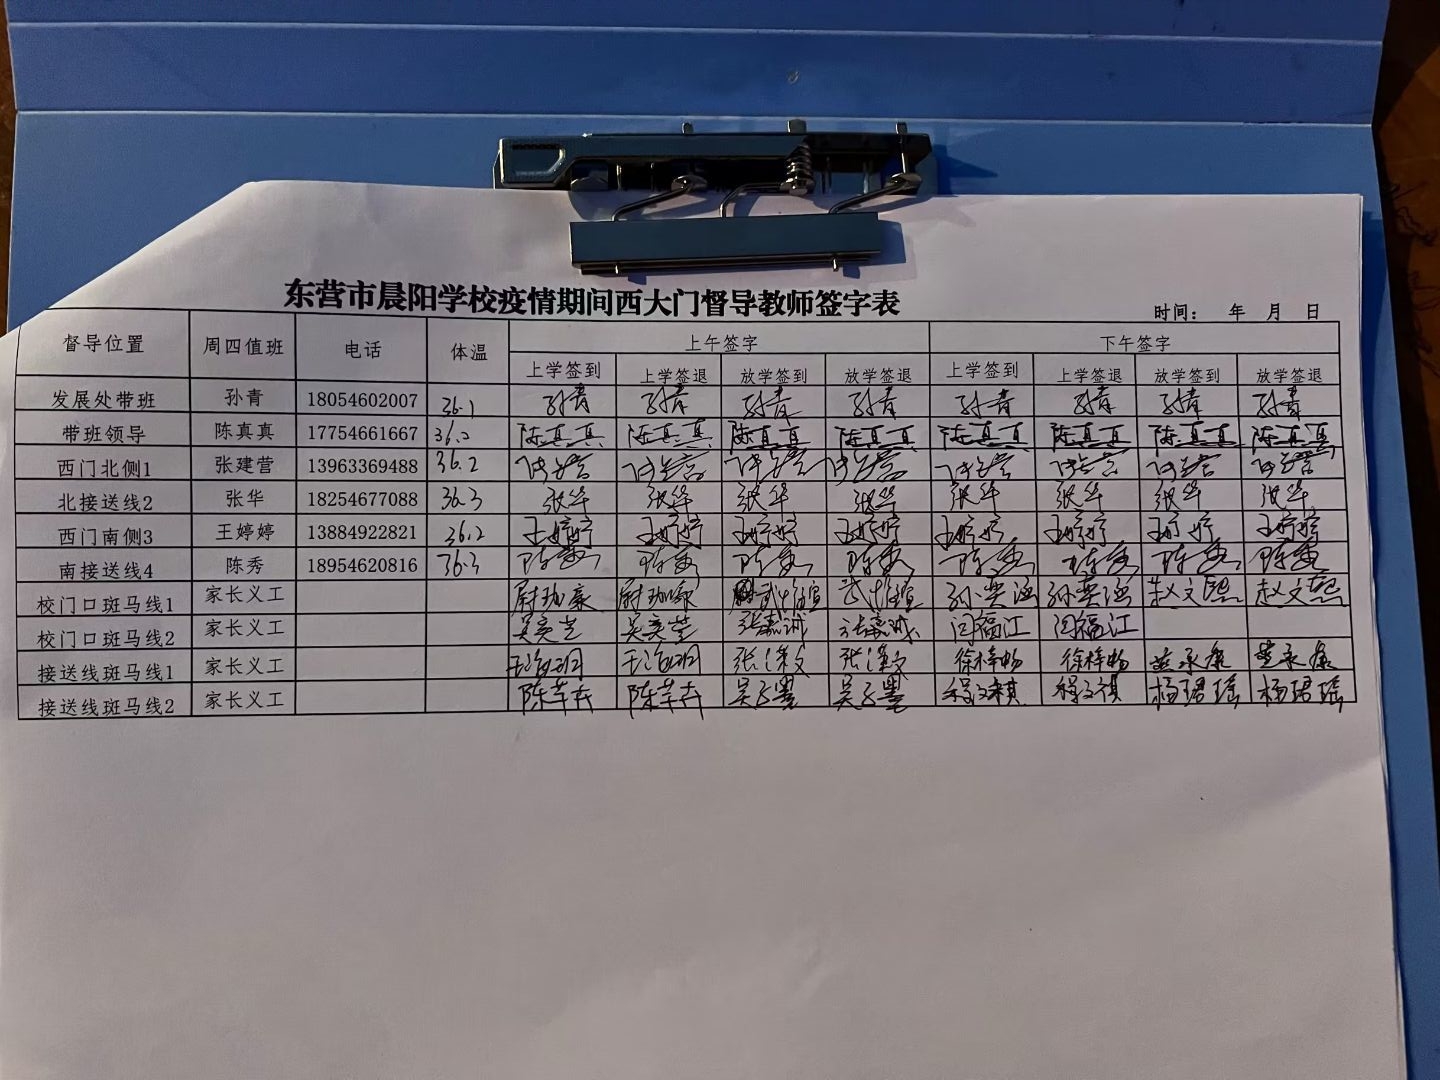 东营市晨阳学校疫情期间西大门督导教师签字表
时间： 年 月 日
督导位置 周四值班 电话 体温 上午签字 下午签字
上学签到 上学签退 放学签到 放学签退 上学签到 上学签退 放学签到 放学签退
发展处带班 孙青 18054602007 36.1 孙青 孙青 孙青 孙青 孙青 孙青 孙青 孙青
带班领导 陈真真 17754661667 36.2 陈真真 陈真真 陈真真 陈真真 陈真真 陈真真 陈真真 陈真真
西门北侧1 张建营 13963369488 36.2 张建营 张建营 张建营 张建营 张建营 张建营 张建营 张建营
北接送线2 张华 18254677088 36.3 张华 张华 张华 张华 张华 张华 张华 张华
西门南侧3 王婷婷 13884922821 36.2 王婷婷 王婷婷 王婷婷 王婷婷 王婷婷 王婷婷 王婷婷 王婷婷
南接送线4 陈秀 18954620816 36.3 陈秀 陈秀 陈秀 陈秀 陈秀 陈秀 陈秀 陈秀
校门口斑马线1 家长义工 赵文熙 赵文熙
校门口斑马线2 家长义工 张嘉诚 张嘉诚 闫福江 闫福江
接送线斑马线1 家长义工 徐梓畅 徐梓畅
接送线斑马线2 家长义工 吴子墨 吴子墨 程文祺 程文祺 杨珺瑶 杨珺瑶